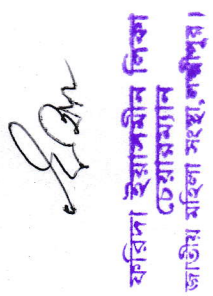 ফরিদা ইয়াসমীন লিকা
চেয়ারম্যান
জাতীয় মহিলা সংস্থা, লক্ষ্মীপুর।